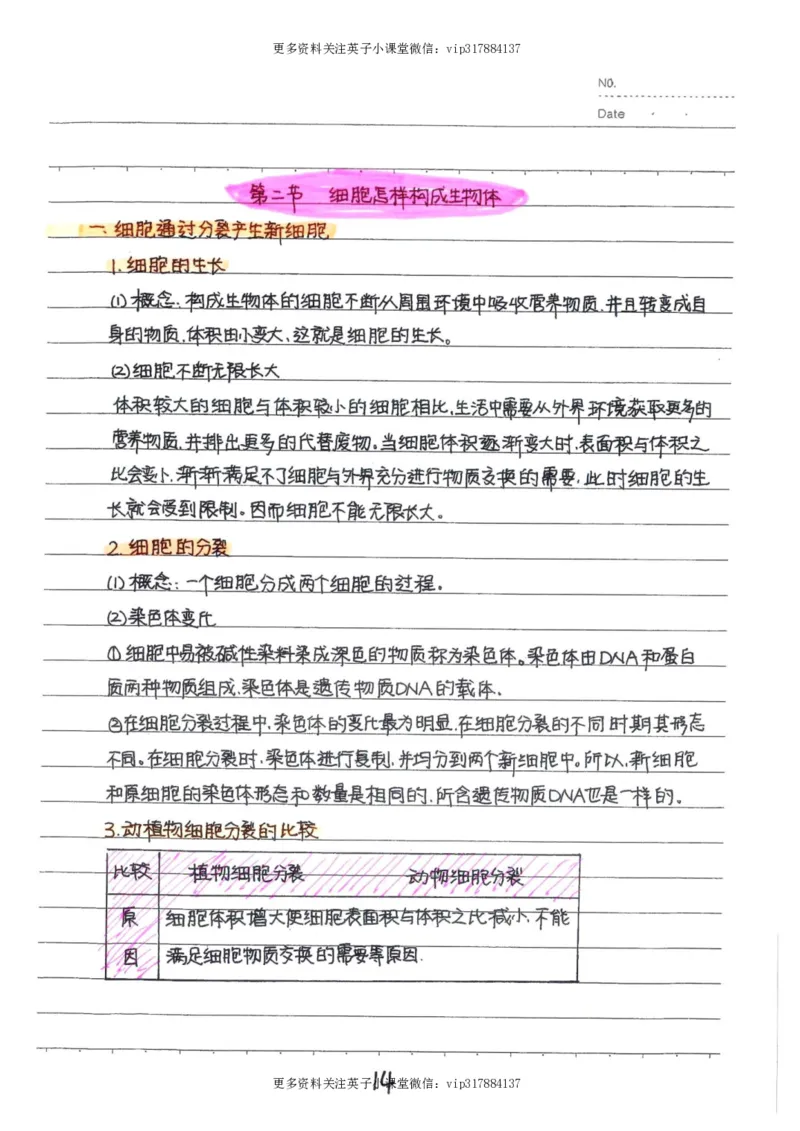 更多资料关注英子小课堂微信：vip317884137
NO.
Date
第二节 细胞怎样构成生物体
一、细胞通过分裂产生新细胞
1.细胞的生长
(1)概念:构成生物体的细胞不断从周围环境中吸收营养物质.并且转变成自
身的物质.体积由小变大、这就是细胞的生长。
(2)细胞不断无限长大
体积较大的细胞与体积较小的细胞相比,生活中需要从外界环境获取更多的
营养物质,并排出更多的代替废物。当细胞体积逐渐变大时,表面积与体积之
比会变小.渐渐满足不了细胞与外界充分进行物质交换的需要,此时细胞的生
长就会受到限制。因而细胞不能无限长大。
2.细胞的分裂
(1)概念:一个细胞分成两个细胞的过程.
(2)染色体变化
①细胞中易被碱性染料染成深色的物质称为染色体。染色体由DNA和蛋白
质两种物质组成.染色体是遗传物质DNA的载体.
②在细胞分裂过程中,染色体的变化最为明显.在细胞分裂的不同时期其形态
不同。在细胞分裂时,染色体进行复制,并均分到两个新细胞中。所以,新细胞
和原细胞的染色体形态和数量是相同的,所含遗传物质DNA也是一样的。
3.动植物细胞分裂的比较
比较 植物细胞分裂 动物细胞分裂
原 细胞体积增大使细胞表面积与体积之比减小.不能
因 满足细胞物质交换的需要等原因.
14
更多资料关注英子小课堂微信：vip317884137